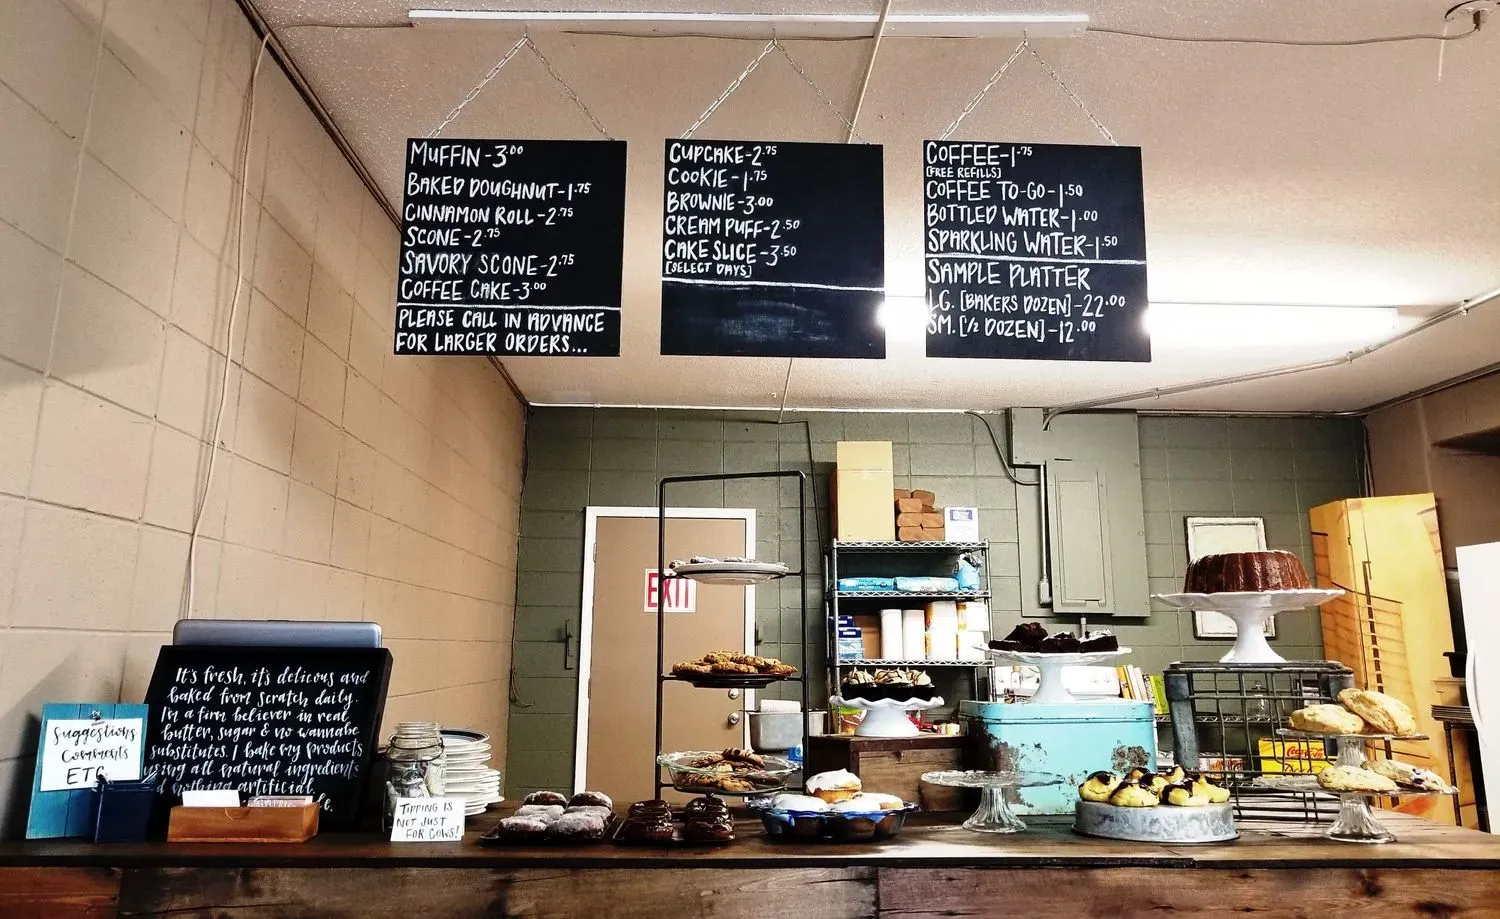 MUFFIN-3.00
BAKED DOUGHNUT-1.75
CINNAMON ROLL-2.75
SCONE-2.75
SAVORY SCONE-2.75
COFFEE CAKE-3.00
PLEASE CALL IN ADVANCE
FOR LARGER ORDERS...
CUPCAKE-2.75
COOKIE-1.75
BROWNIE-3.00
CREAM PUFF-2.50
CAKE SLICE-3.50
[SELECT DAYS]
COFFEE-1.75
[FREE REFILLS]
COFFEE TO-GO-1.50
BOTTLED WATER-1.00
SPARKLING WATER-1.50
SAMPLE PLATTER
LG. [BAKERS DOZEN]-22.00
SM. [1/2 DOZEN]-12.00
EXIT
It's fresh, it's delicous and
baked from scratch daily.
I'm a firm believer in real
butter, sugar & no wannabe
substitutes. I bake my products
using all natural ingredients
nothing artificial.
Suggestions
Comments
ETC
TIPPING IS
NOT JUST
FOR COWS!
Coca-Cola